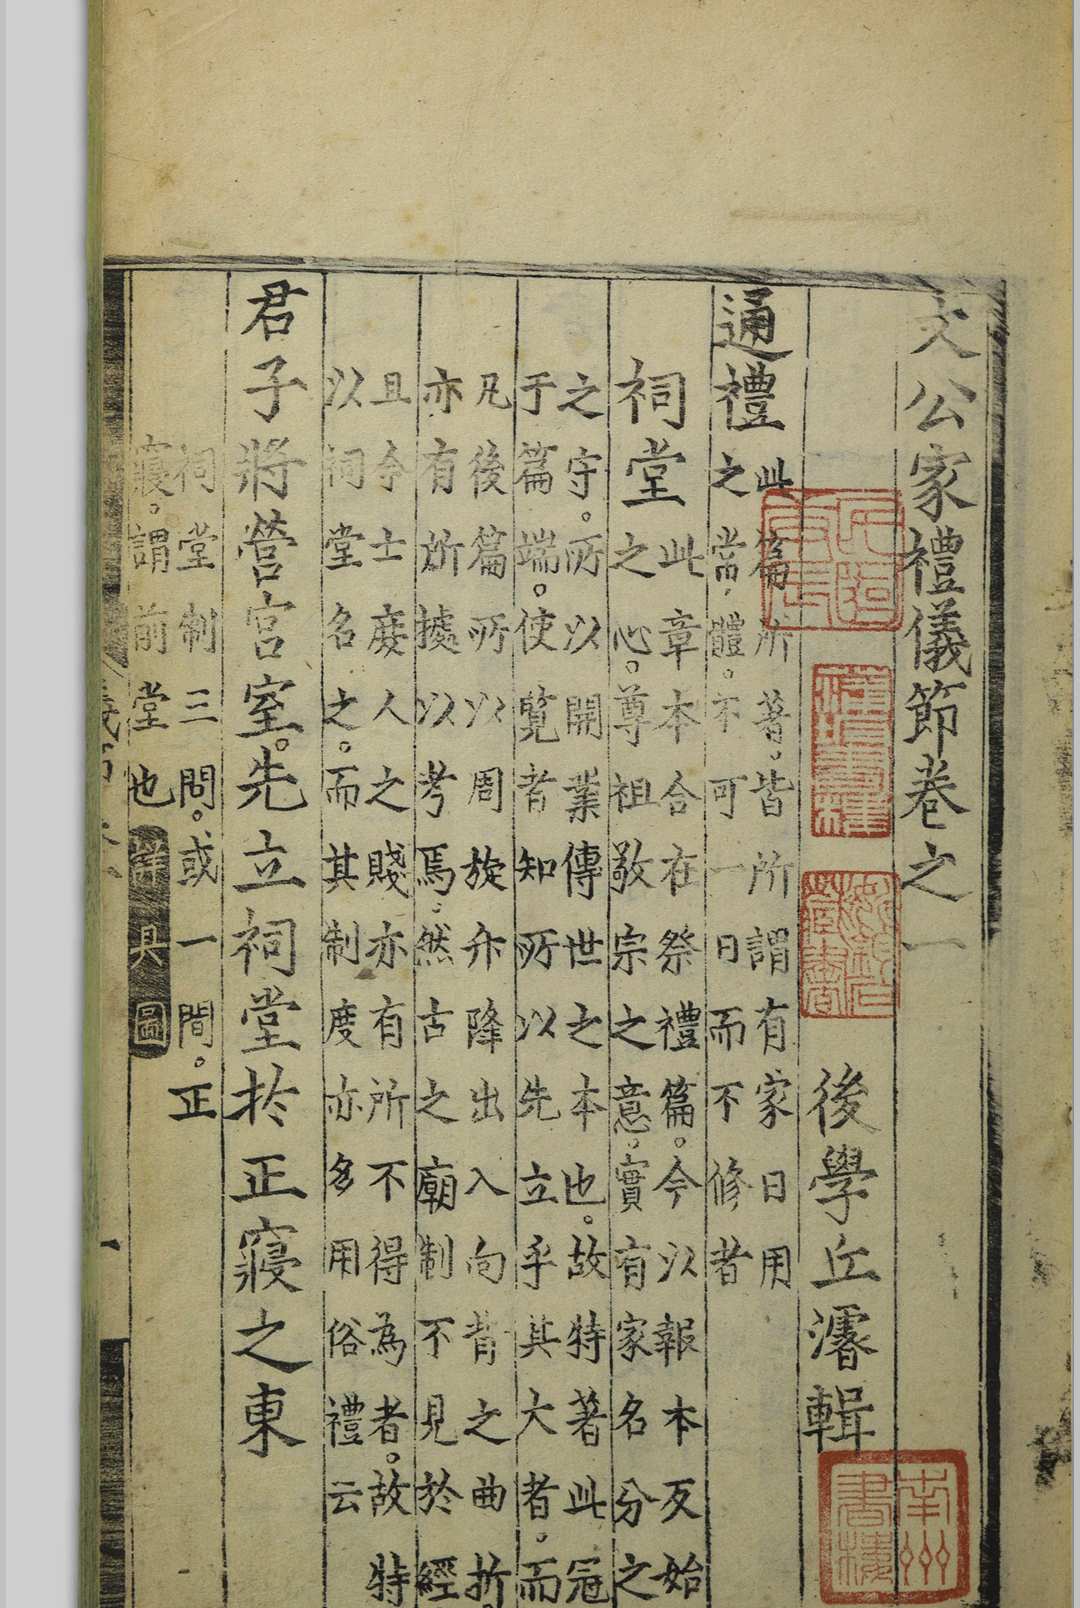 文公家禮儀節卷之一
後學丘濬輯
通禮
此篇所著。皆所謂有家日用
之常體。不可一日而不修者
祠堂
此章本合在祭禮篇。今以報本反始
之心。尊祖敬宗之意。實有家名分之
之守。所以開業傳世之本也。故特著此冠
于篇端。使覽者知所以先立乎其大者。而
凡後篇所以周旋升降出入向背之曲折。
亦有所據以考焉。然古之廟制不見於經
且今士庶人之賤亦有所不得為者。故特
以祠堂名之。而其制度亦多用俗禮云
君子將營宮室。先立祠堂於正寢之東
祠堂制三間。或一間。正
寢。謂前堂也
具圖
南州書樓